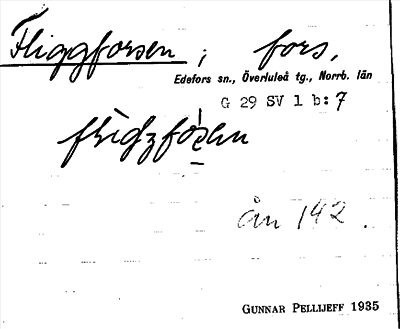 Fliggforsen ; fors,
Edefors sn., Överluleå tg., Norrb. län
G 29 SV 1 b: 7
ån 142.
GUNNAR PELLIJEFF 1935